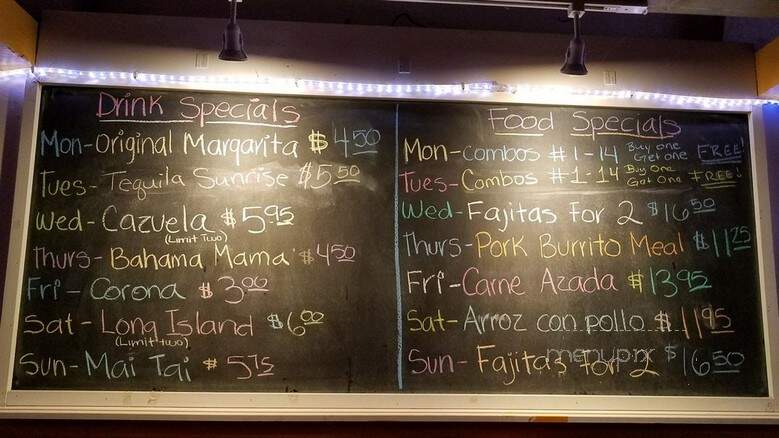 Drink Specials
Mon-Original Margarita $4.50
Tues-Tequila Sunrise $5.50
Wed-Cazuela $5.95
(Limit Two)
Thurs-Bahama Mama $4.50
Fri-Corona $3.00
Sat-Long Island $6.00
(Limit two)
Sun-Mai Tai $5.75
Food Specials
Mon-Combos #1-14 Buy one Get one FREE!
Tues-Combos #1-14 Buy One Get One FREE!
Wed-Fajitas For 2 $16.50
Thurs-Pork Burrito Meal $11.25
Fri-Carne Azada $13.95
Sat-Arroz con pollo $11.95
Sun-Fajitas for 2 $16.50
menupix